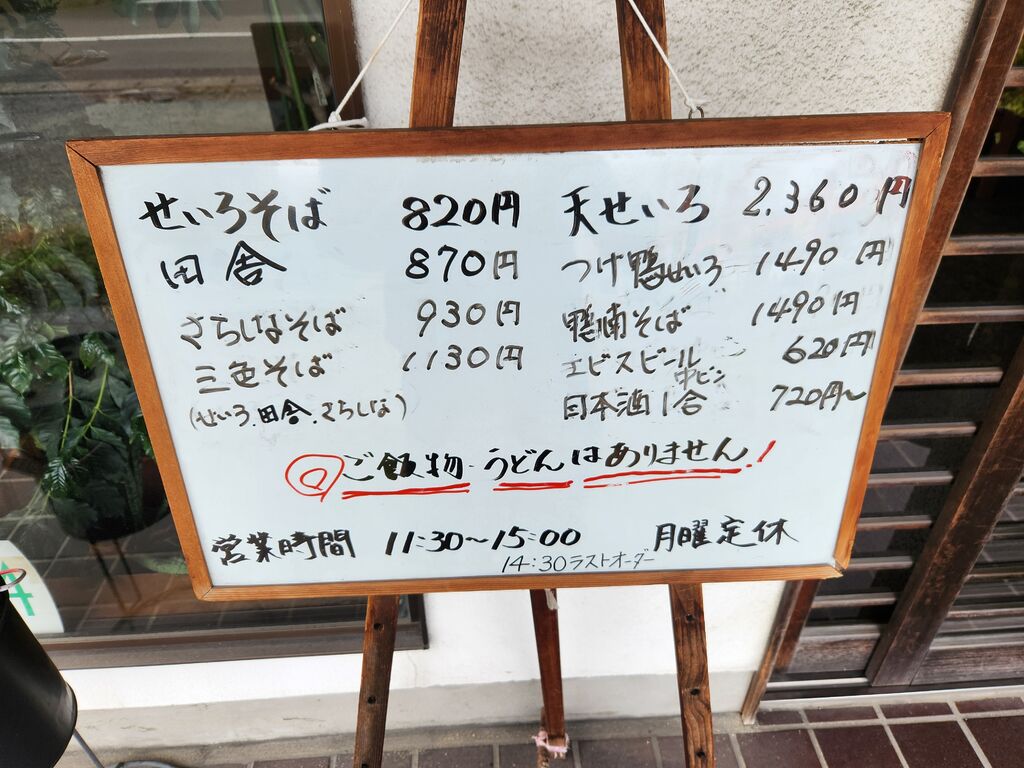 せいろそば 820円
田舎 870円
さらしなそば 930円
三色そば 1130円
(せいろ.田舎.さらしな)
天せいろ 2,360円
つけ鴨せいろ 1490円
鴨南そば 1490円
エビスビール 620円
中ビン
日本酒1合 720円〜
ご飯物・うどんはありません!
営業時間 11:30〜15:00 月曜定休
14:30ラストオーダー